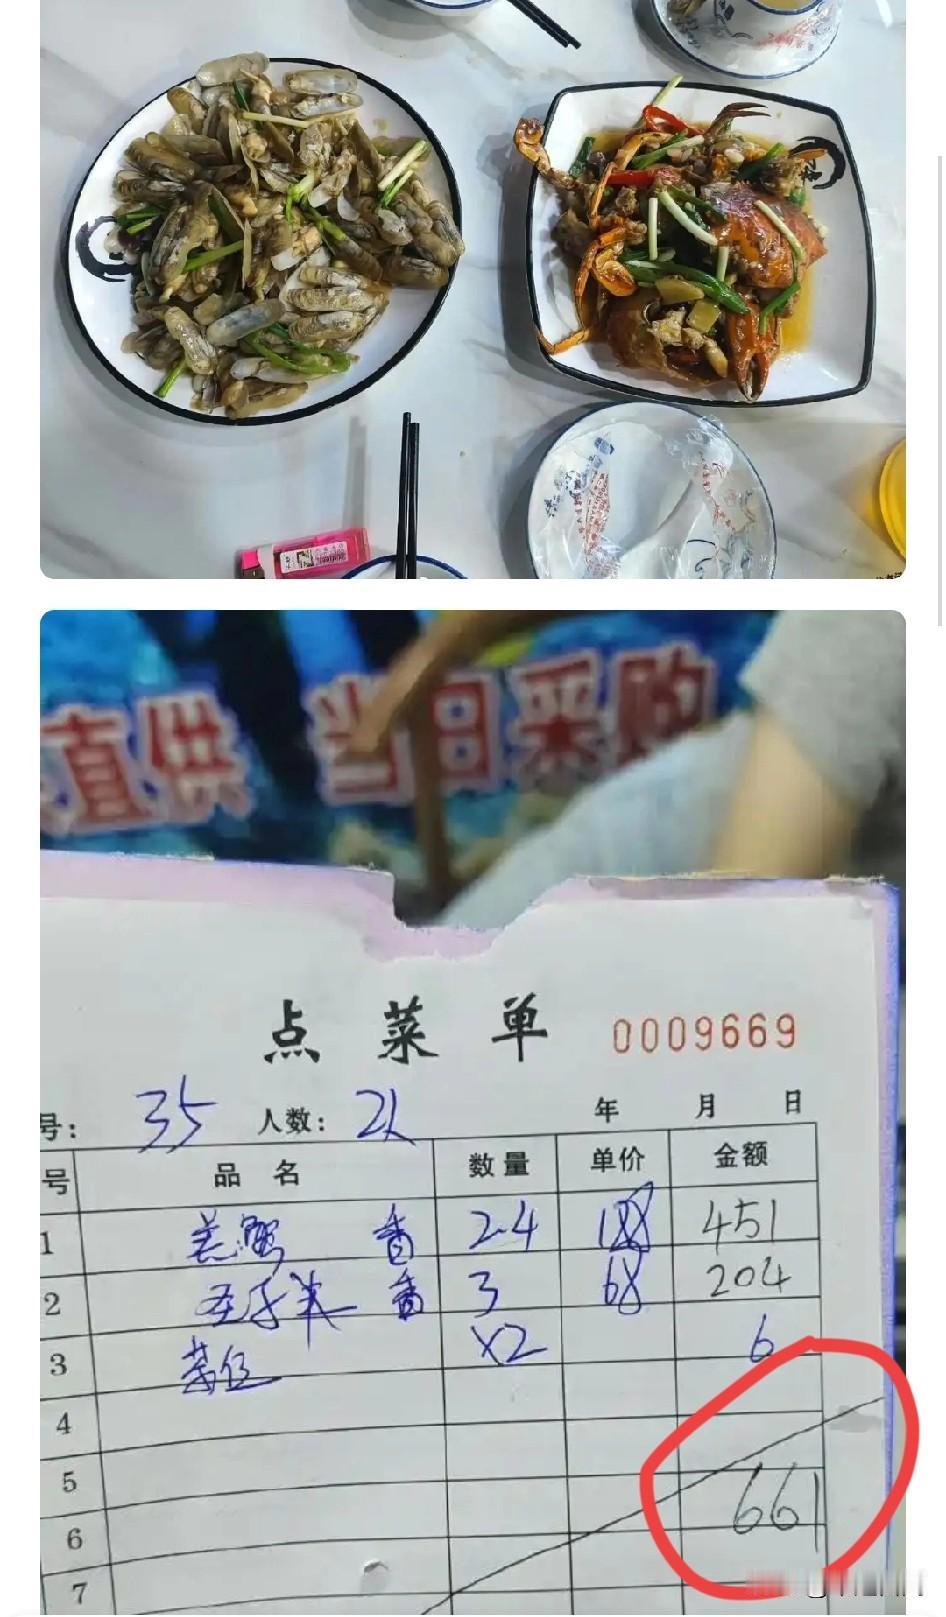 直供 当日采购
点菜单 0009669
号: 35 人数: 2人 年 月 日
号 品名 数量 单价 金额
1 羔蟹 香 2.4 188 451
2 圣子半 香 3 68 204
3 茶位 x2 6
4
5
6 661
7